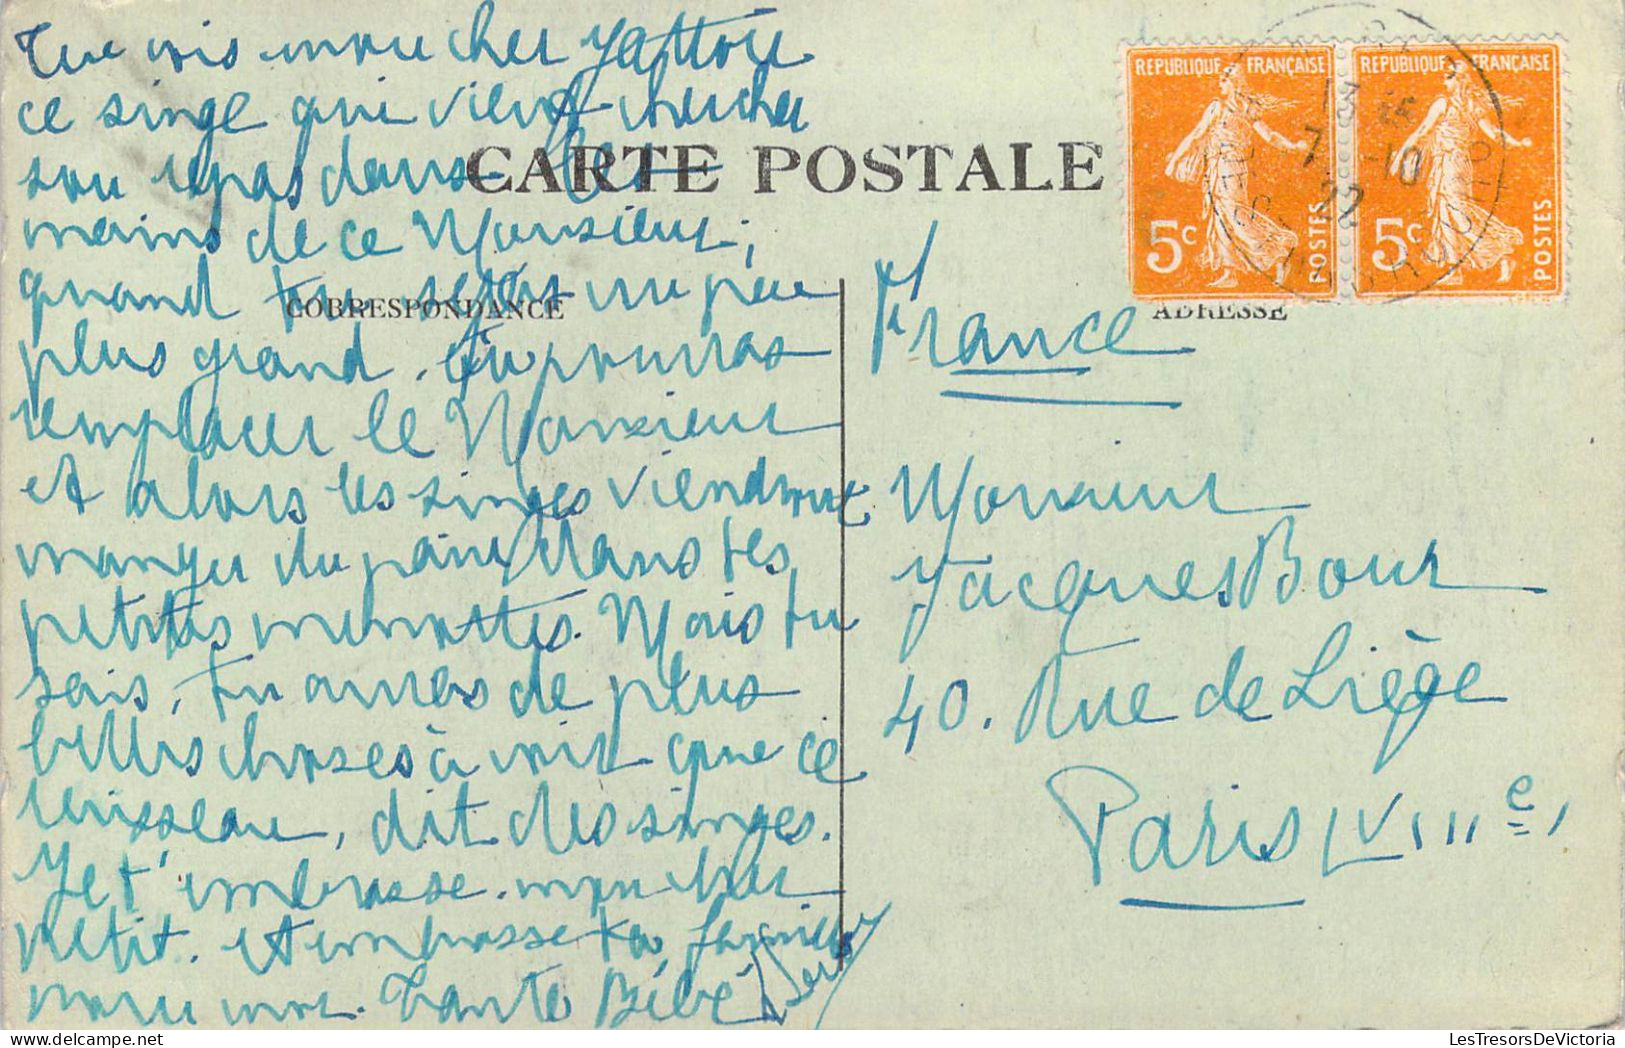 Tu vois mon cher
ce singe qui vient chercher
son repas dans les
mains de ce Monsieur;
quand tu seras un peu
plus grand, tu pourras
remplacer le Monsieur
et alors les singes viendront
manger du pain dans tes
petites menottes. Mais tu
sais, tu auras de plus
belles choses à voir que ce
ruisseau, dit des singes.
Je t'embrasse mon cher
petit. et embrasse ta famille
pour moi. Tante Bébé
CARTE POSTALE
CORRESPONDANCE
ADRESSE
REPUBLIQUE FRANÇAISE
5c
POSTES
REPUBLIQUE FRANÇAISE
5c
POSTES
13
7 -10
22
France
Monsieur
Jacques Bour
40. Rue de Liège
Paris (VIIIe)
LesTresorsDeVictoria.com